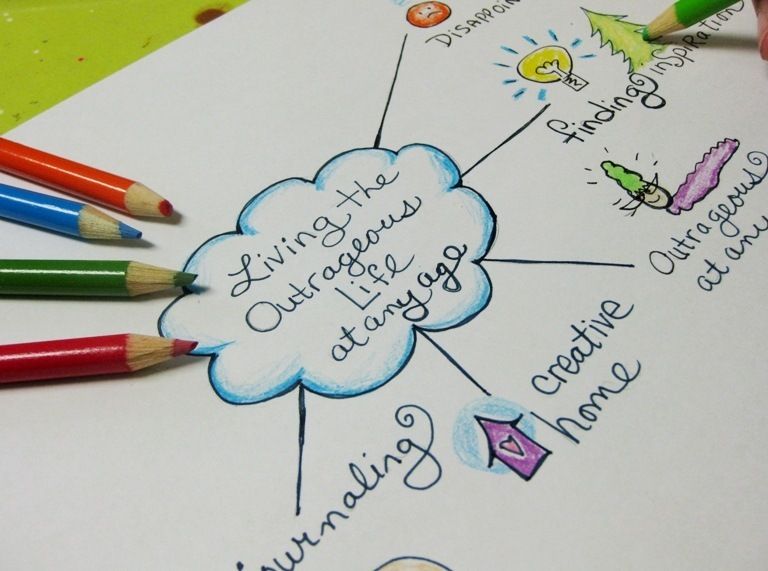 Living the
Outrageous
Life
at any age
Disappoin
finding
inspiration
Outrageous
at any
creative
home
ournaling